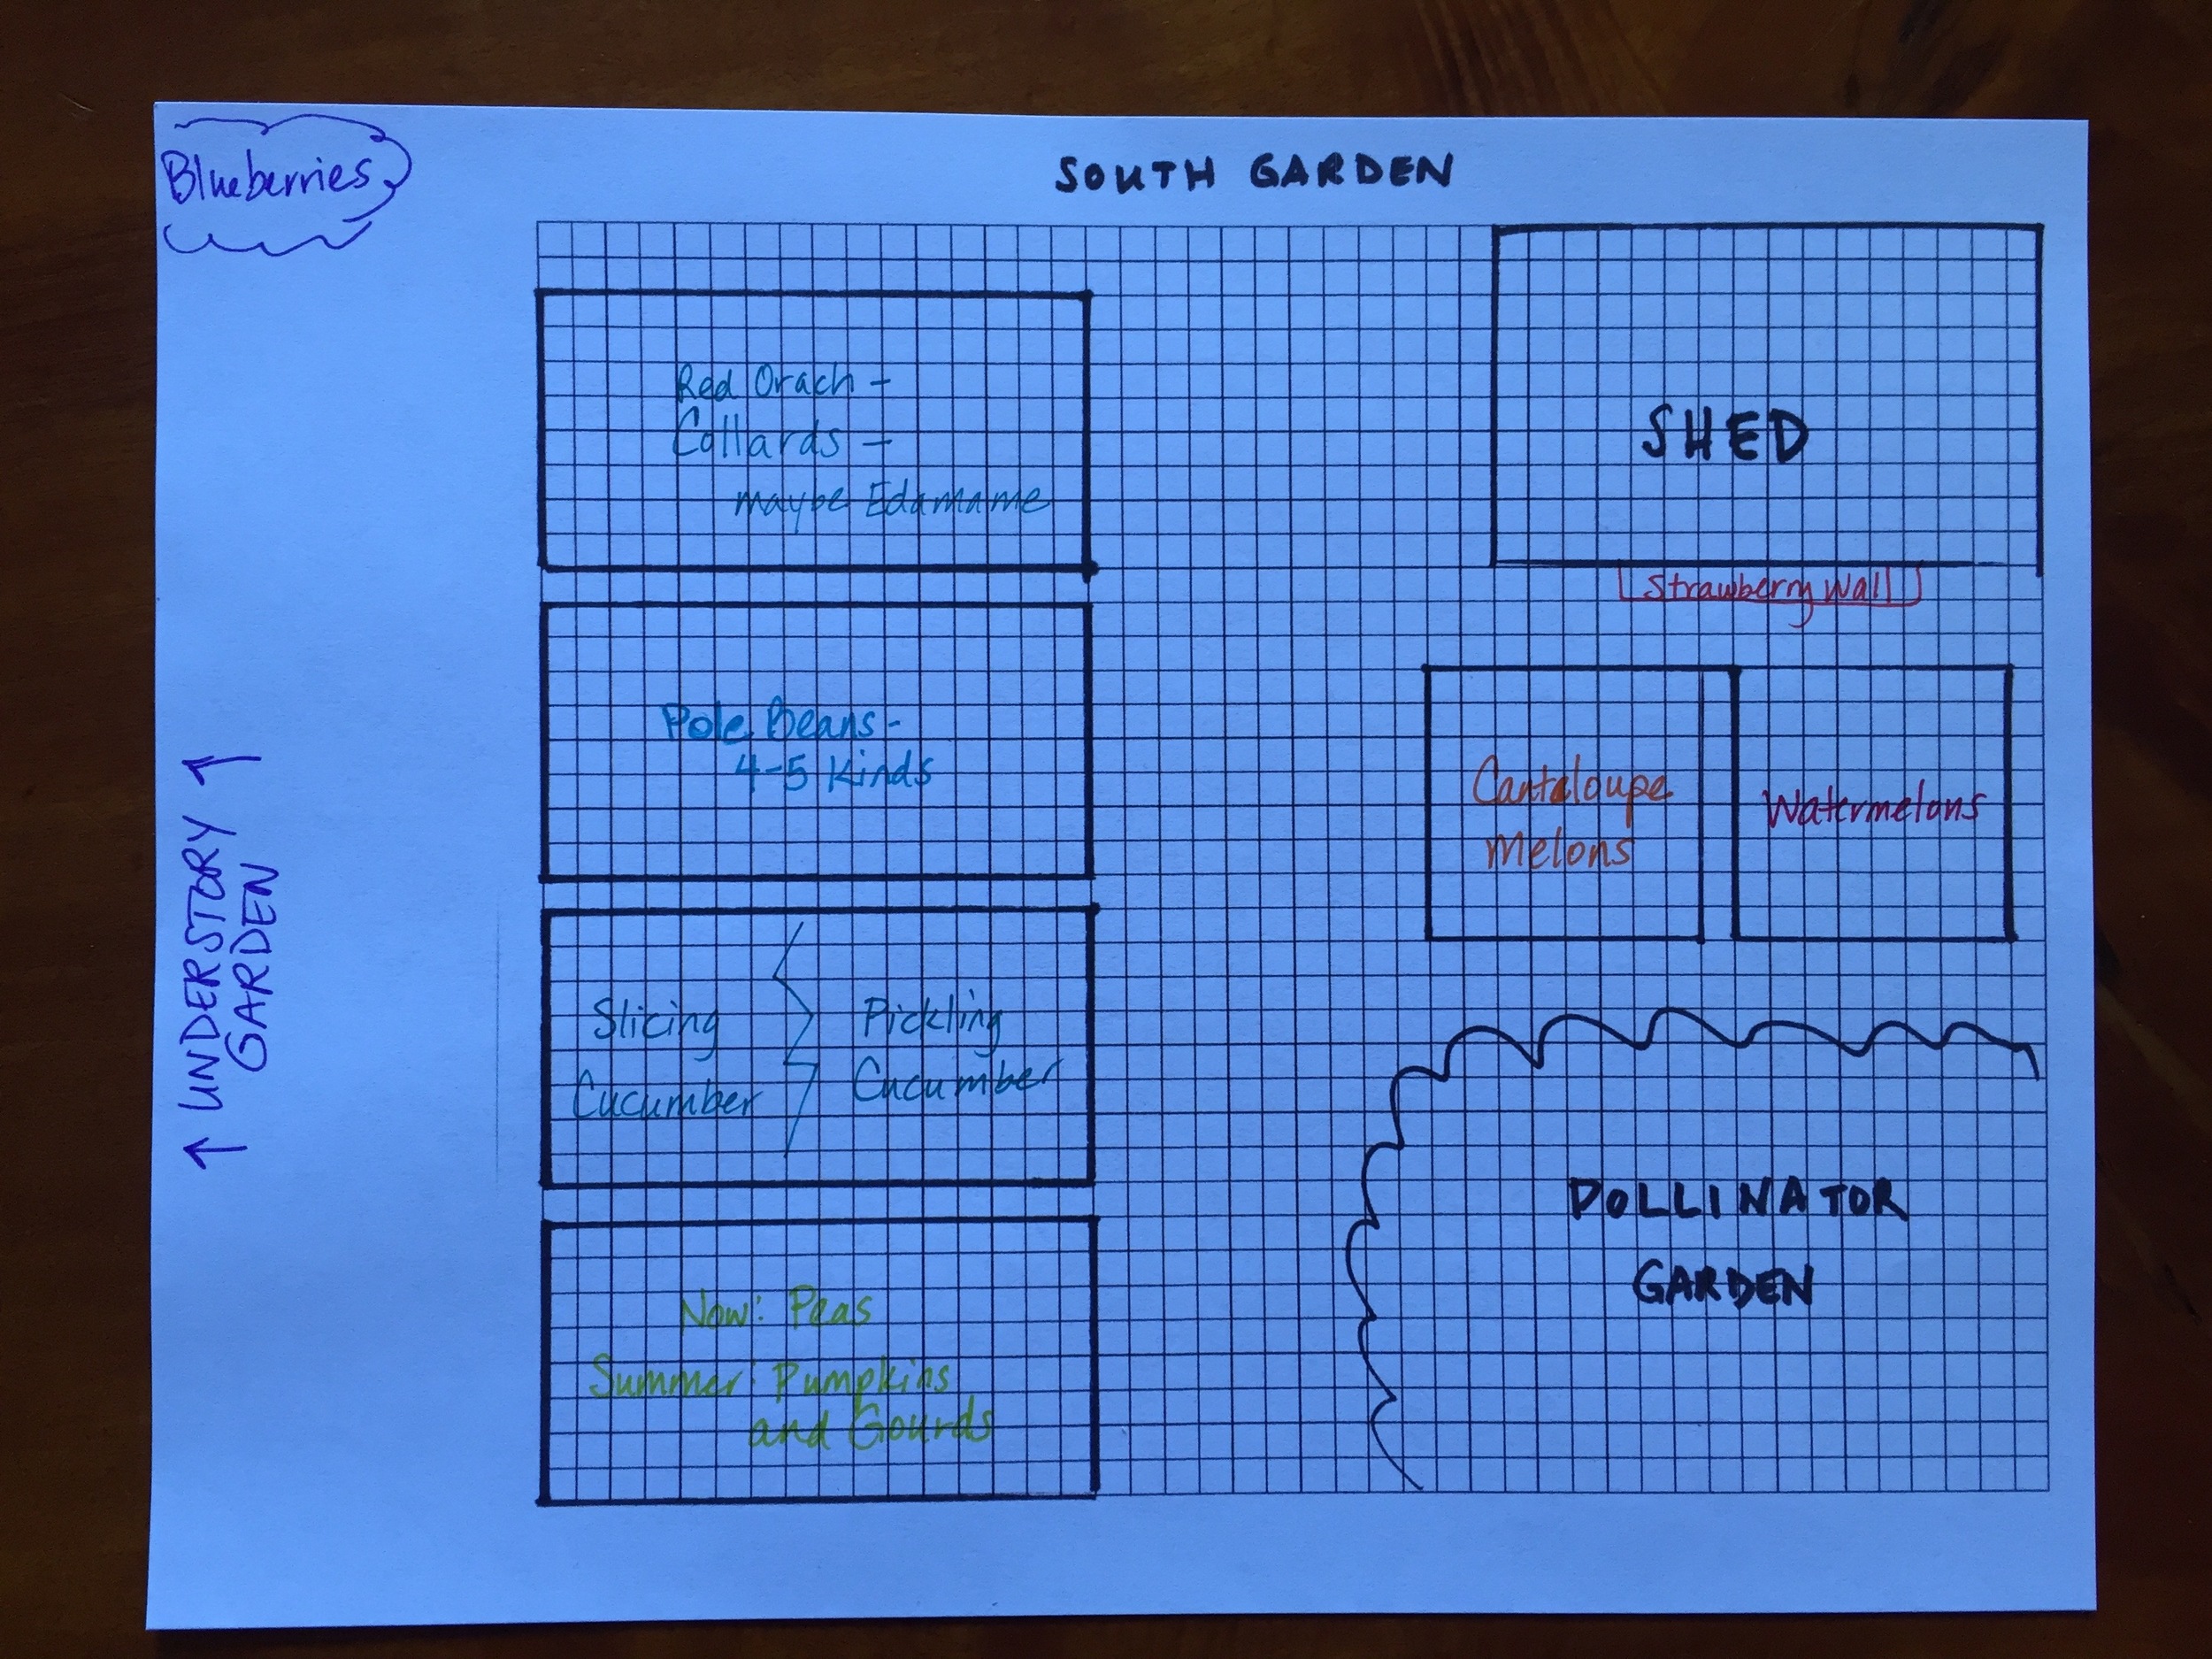 Blueberries
SOUTH GARDEN
Red Orach -
Collards -
maybe Edamame
SHED
Strawberry Wall
Pole Beans -
4-5 Kinds
Cantaloupe
Melons
Watermelons
↑ UNDERSTORY ↑
GARDEN
Slicing
Cucumber
Pickling
Cucumber
POLLINATOR
GARDEN
Now: Peas
Summer: Pumpkins
and Gourds